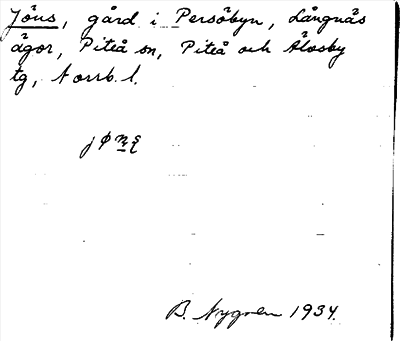 Jöns, gård i Persöbyn, Långnäs
ägor, Piteå sn, Piteå och Älvsby
tg, Norrb. l.
B. Nygren 1934.